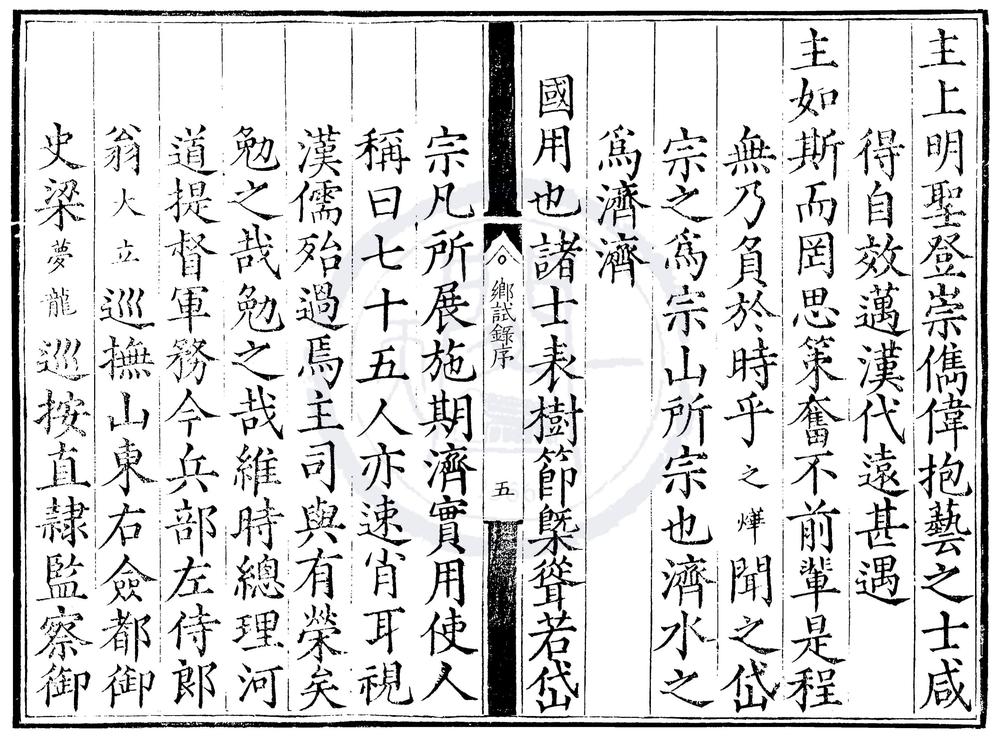 主上明聖登崇儁偉抱藝之士咸
得自效邁漢代遠甚遇
主如斯而罔思策奮不前輩是程
無乃負於時乎之燁聞之岱
宗之爲宗山所宗也濟水之
爲濟濟
國用也諸士表樹節槩聳若岱
鄉試錄序
五
宗凡所展施期濟實用使人
稱曰七十五人亦速肖耳視
漢儒殆過焉主司與有榮矣
勉之哉勉之哉維時總理河
道提督軍務今兵部左侍郎
翁大立巡撫山東右僉都御
史梁夢龍巡按直隸監察御